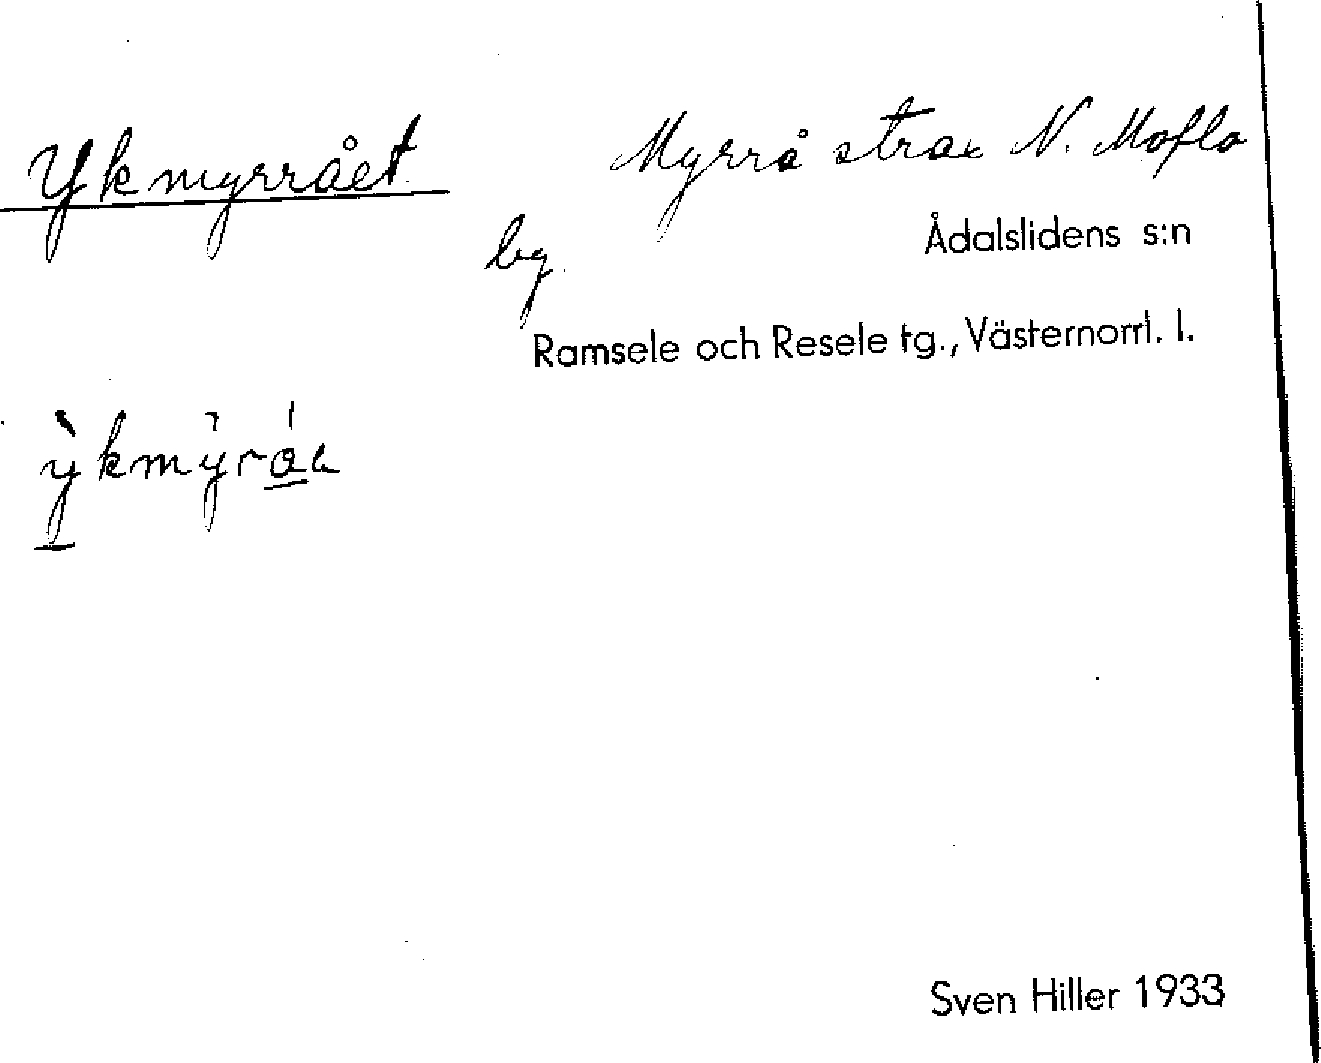 Ykmyrrået
Myrrå strax N. Moflo
by.
Ådalslidens s:n
Ramsele och Resele tg., Västernorrl. l.
Sven Hiller 1933